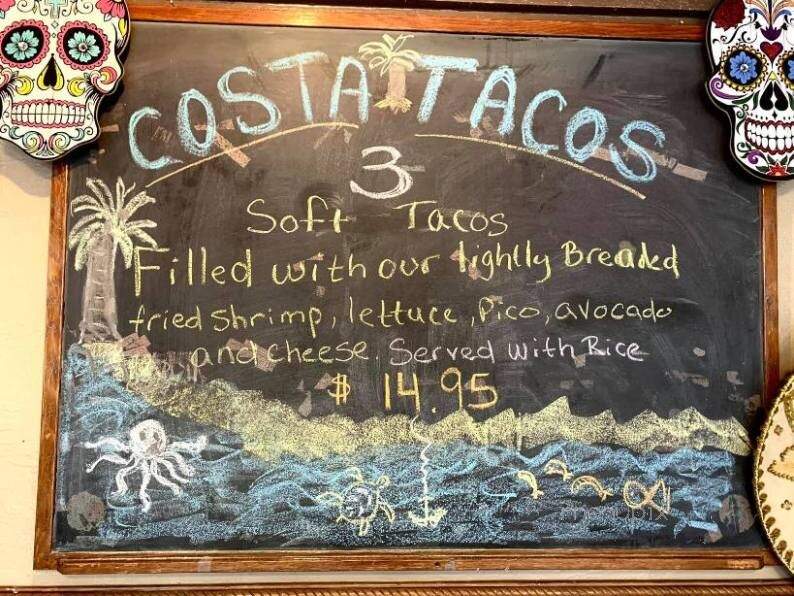 COSTA TACOS
3
Soft Tacos
Filled with our lightly Breaded
fried shrimp, lettuce, Pico, avocado
and cheese. Served with Rice
$ 14.95